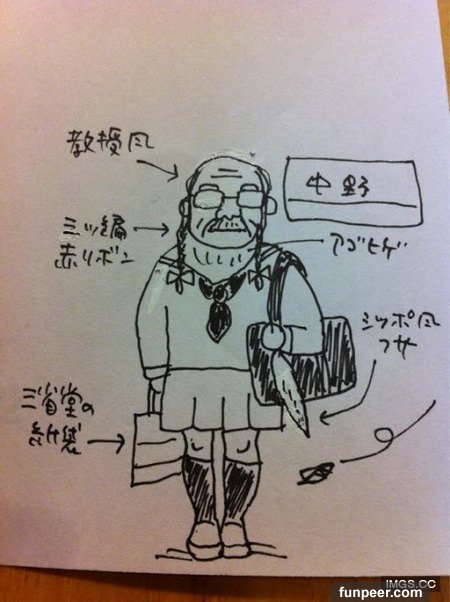 教授風
中野
三ツ編
赤リボン
アゴヒゲ
シッポ風
フサ
三省堂の
紙袋
IMGS.CC
funpeer.com